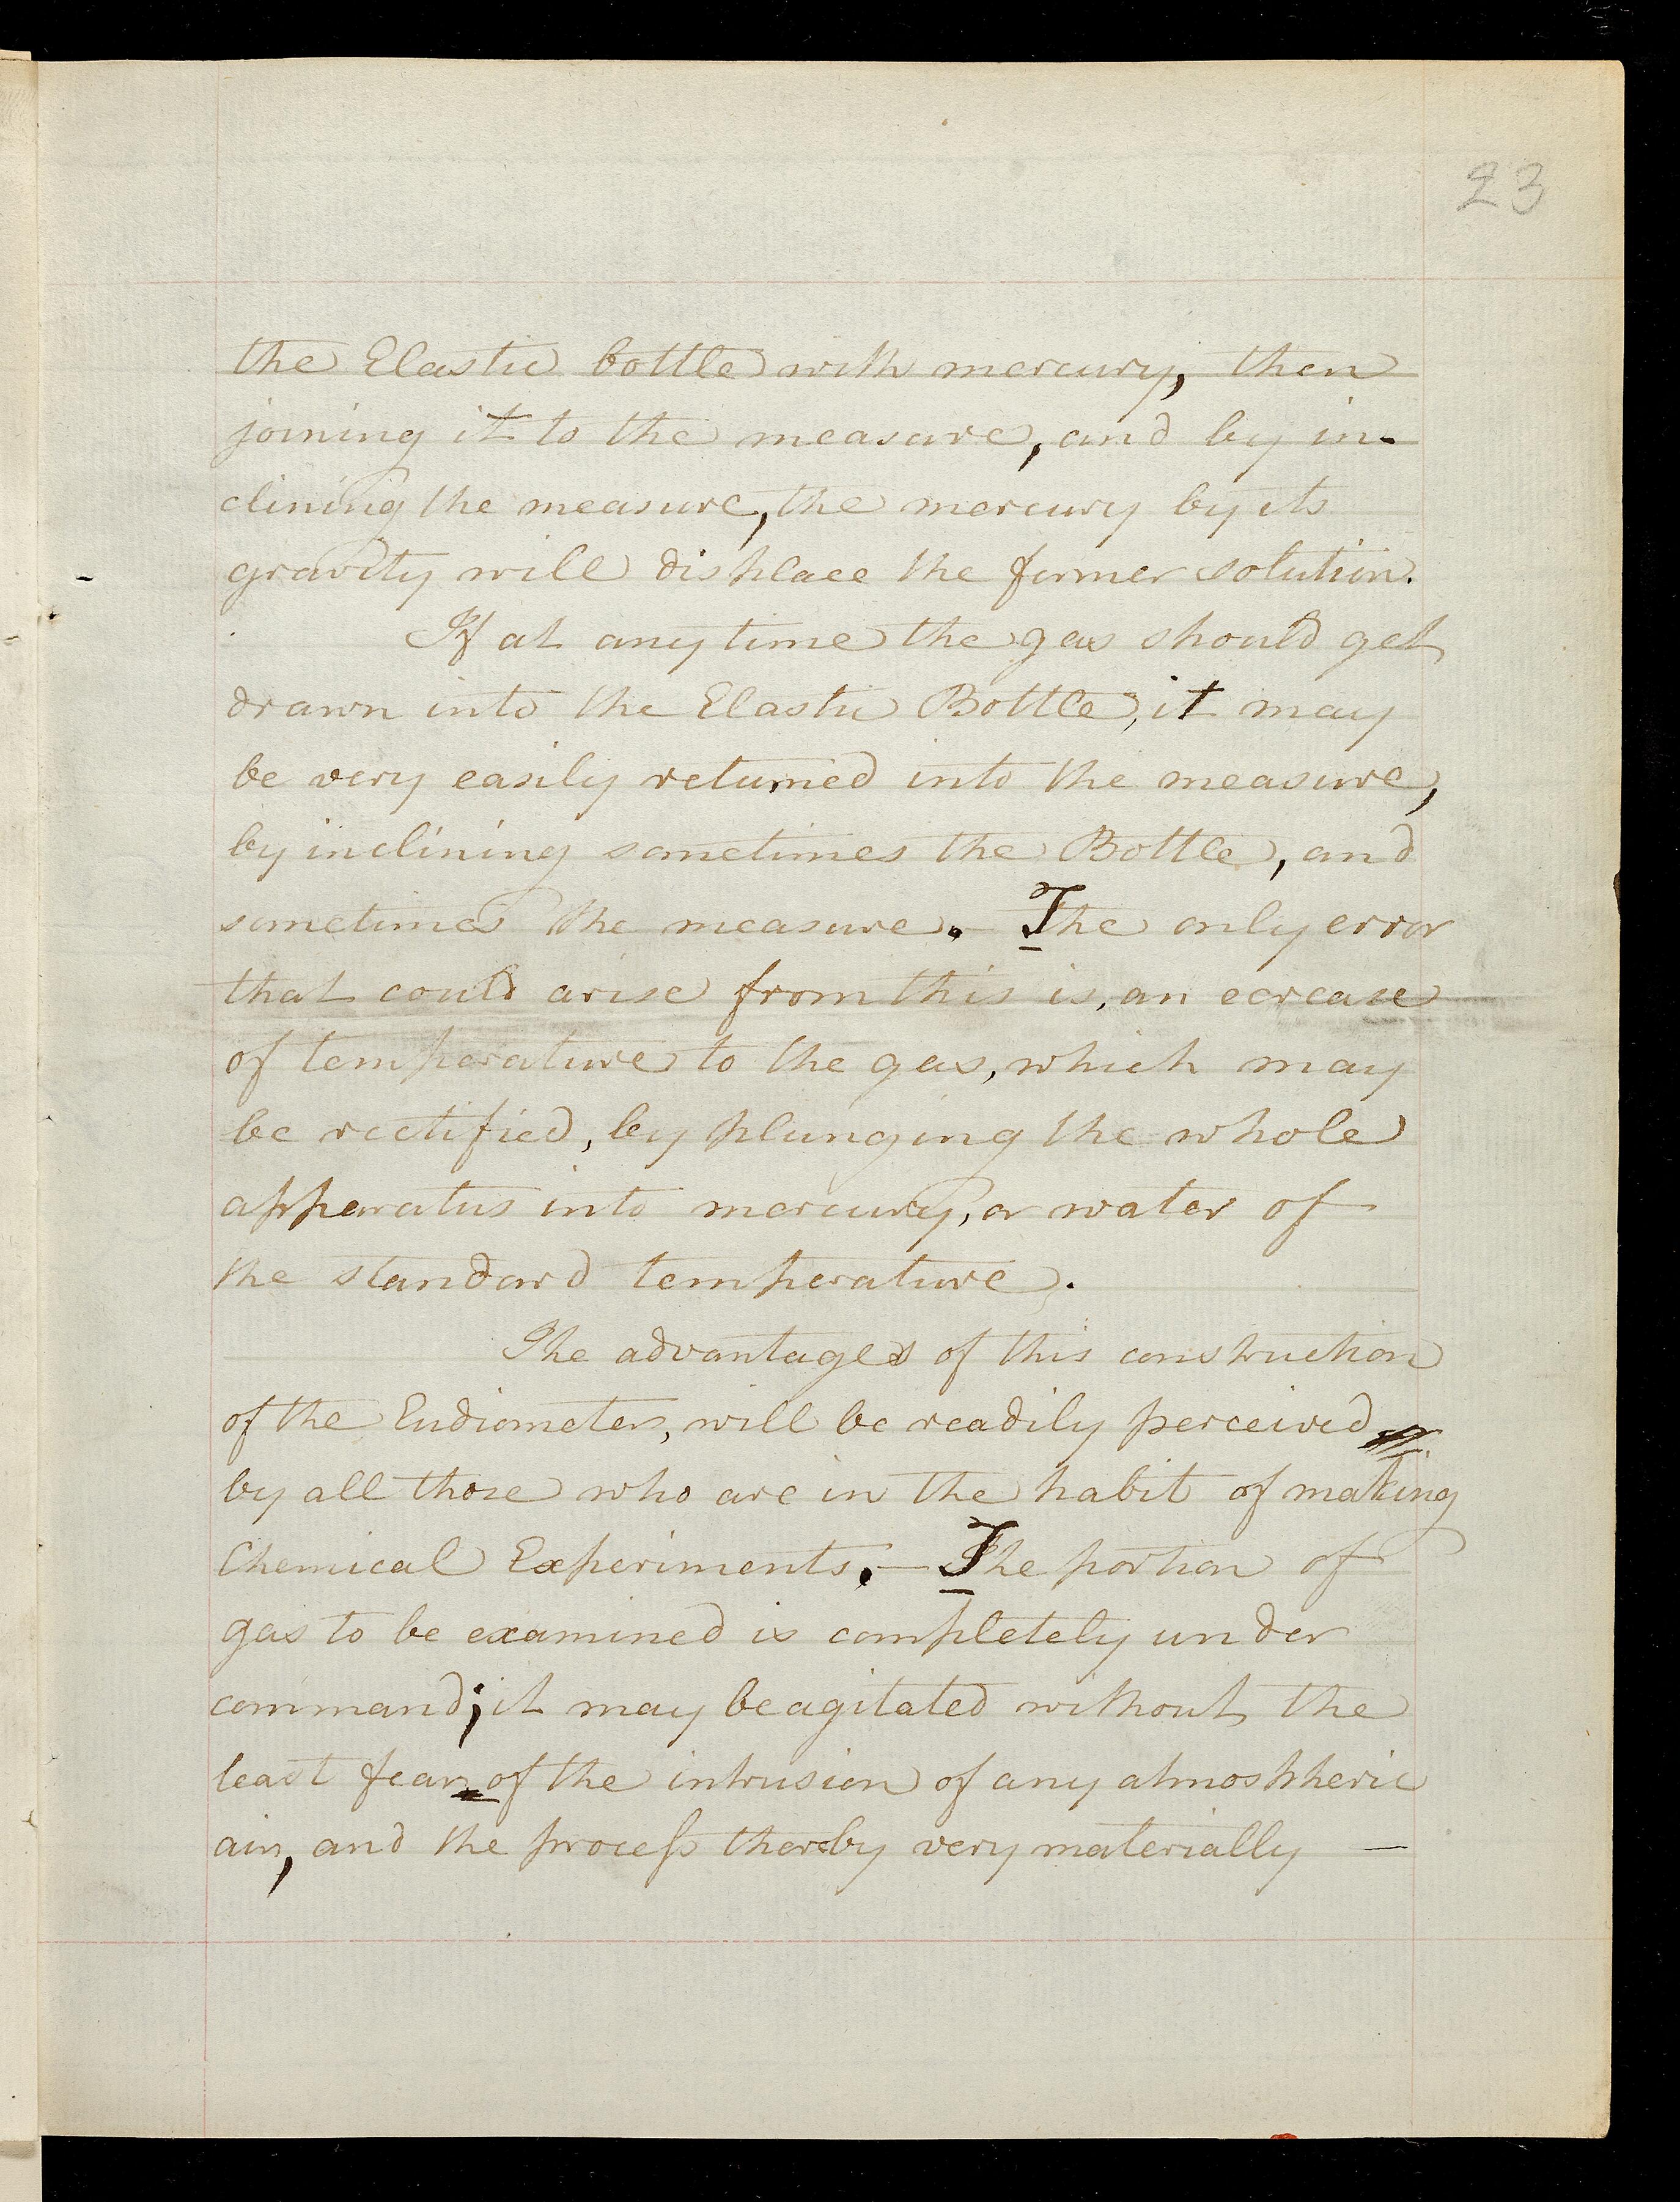 23
the Elastic bottle with mercury, then
joining it to the measure, and by in-
clining the measure, the mercury by its
gravity will displace the former solution.
If at any time the gas should get
drawn into the Elastic Bottle, it may
be very easily returned into the measure,
by inclining sometimes the Bottle, and
sometimes the measure. – The only error
that could arise from this is, an ecrease
of temperature to the gas, which may
be rectified, by plunging the whole
apparatus into mercury, or water of
the standard temperature.
The advantages of this construction
of the Eudiometer, will be readily perceived
by all those who are in the habit of making
Chemical Experiments. – The portion of
gas to be examined is completely under
command; it may be agitated without the
least fear of the intrusion of any atmospheric
air, and the process thereby very materially —